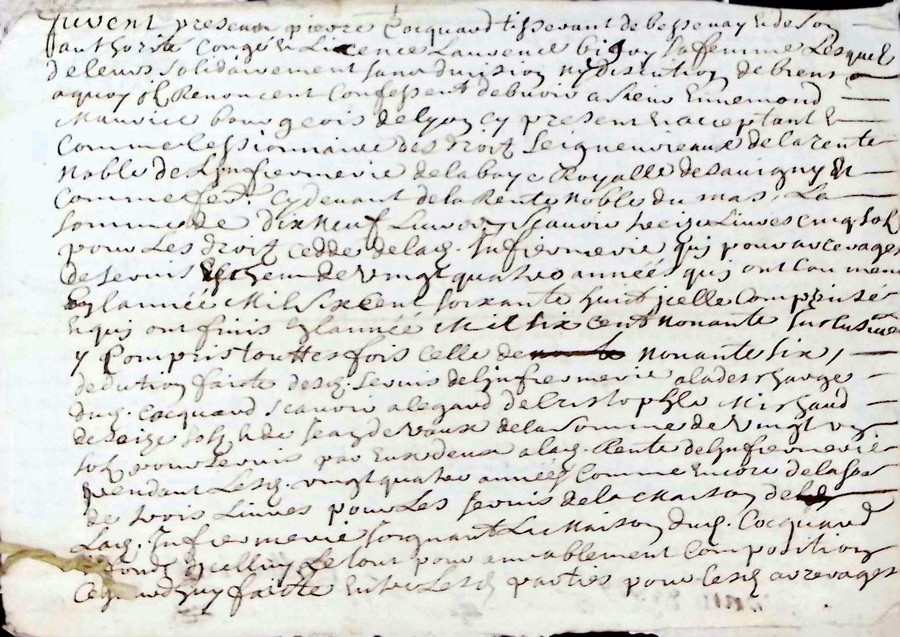 furent presens pierre Cocquard tisserant de bessenay & de son
authorité Congé & Licence Laurence bigny sa femme Lesquels
de leurs solidairement sans division ny discution de biens
a quoy ilz Renoncent Confessent debvoir a sieur Ennemond
Maurice bourgeois de Lyon cy present & acceptant &
comme Cessionnaire des droitz seigneuriaux de la rente
Noble de L'infirmerie de labaye Royalle de savigny &
comme fer. cy devant de la Rente Noble du mas, La
somme de dix neuf Livres scavoir seize Livres cinq solz
pour Les droitz ceddes de lad. Infirmerie quj pour arrerages
de servis de vingt quatre années quj ont Commencé
en lannée Mil six cent soixante huict jcelle Comprise
& quj ont finis en lannée Mil six cent nonante Inclusive
y Compris touttes fois celle de nonante six,
deduction faite desd. servis de linfirmerie a la descharge
dud. Cocquard scavoir a legard de Cristophle Michaud
de seize solz & de Jean de vaux de la somme de vingt un
solz pour servis par Eux deux a lad. Rente de linfirmerie
pendant Lesd. vingt quatre années Comme Encore de la somme
de trois Livres pour Les servis de la Maison de
Lad. Infirmerie joignant La Maison dud. Cocquard
fondz Le tout pour amiablement Composition
Cejourdhuy faite Entre Lesd. parties pour Lesd. arrerages